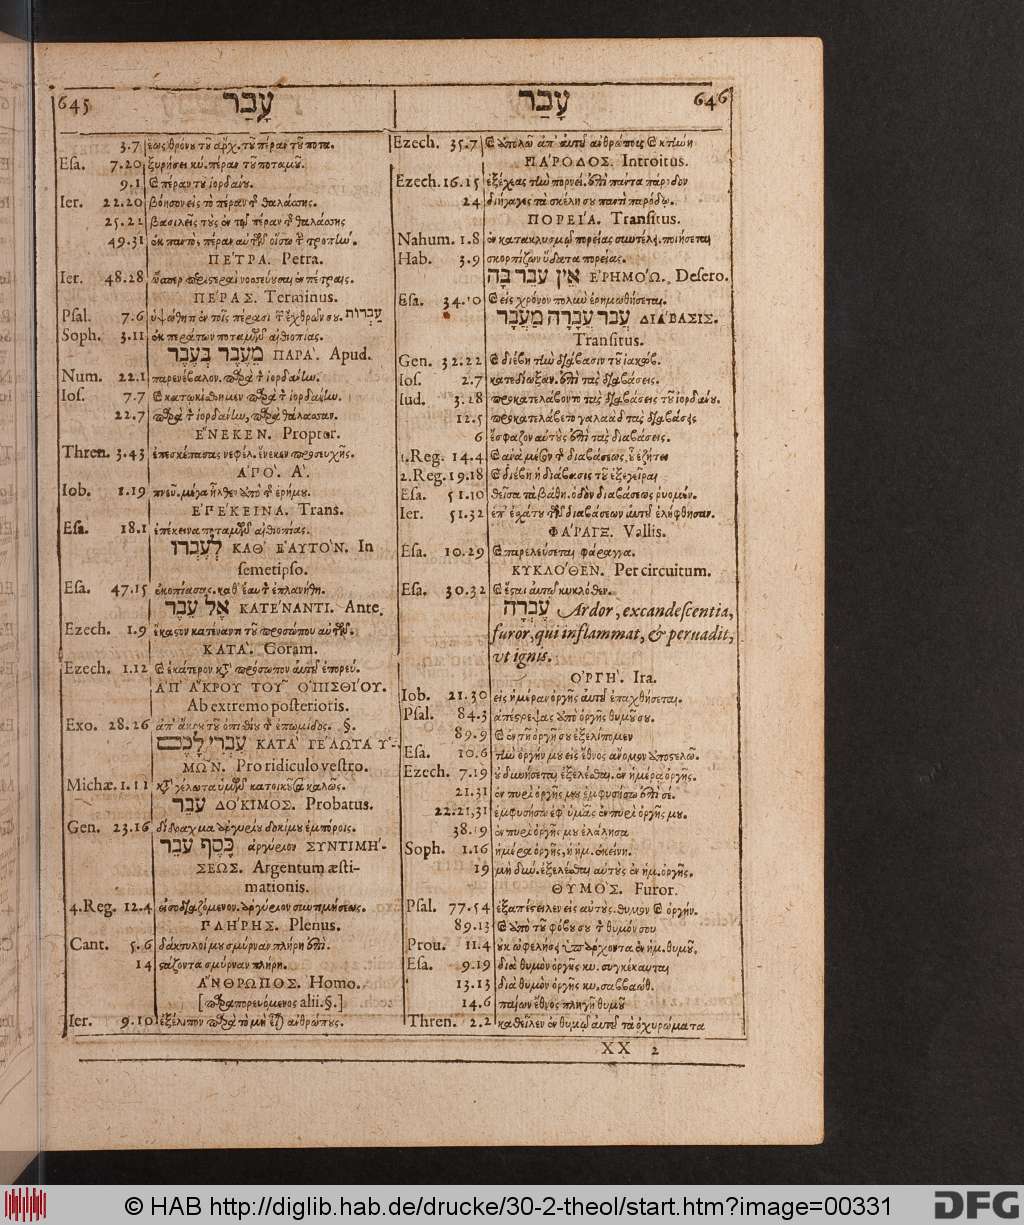 645 עָבַר
3.7 ἕως θρόνου τοῦ ἄρχ. τοῦ πέραν τοῦ ποτα.
Esa. 7.20 ξυρήσει κύ. πέραν τοῦ ποταμοῦ.
9.1 ϗ πέραν τοῦ ἰορδάνου.
Ier. 22.20 βόησον εἰς τὸ πέραν τῆς θαλάσσης.
25.22 βασιλεῖς τοὺς ἐν τῷ πέραν τῆς θαλάσσης
49.31
ΠΕΤΡΑ. Petra.
Ier. 48.28 ὥσπερ περιστεραὶ νοσσεύουσαι ἐν πέτραις.
ΠΕΡΑΣ. Terminus.
Psal. 7.6 ὑψώθητι ἐν τοῖς πέρασι τῶν ἐχθρῶν σου. עַבְרוֹת
Soph. 3.11 ἐκ περάτων ποταμῶν αἰθιοπίας.
מֵעֵבֶר בְּעֵבֶר ΠΑΡΑ. Apud.
Num. 22.1 παρενέβαλον παρὰ τὸν ἰορδάνην.
Ios. 7.7 ϗ κατῳκίσθημεν παρὰ τὸν ἰορδάνην.
22.7 παρὰ τὸν ἰορδάνην, παρὰ θάλασσαν.
ἝΝΕΚΕΝ. Propter.
Thren. 3.43 ἐπεσκέπασας νεφέλ. ἕνεκεν προσευχῆς.
ἈΠΟ. A.
Iob. 1.19 πνεῦ. μέγα ἦλθεν ἀπὸ τῆς ἐρήμου.
ἘΠΕΚΕΙΝΑ. Trans.
Esa. 18.1 ἐπέκεινα ποταμῶν αἰθιοπίας.
לְעֶבְרוֹ ΚΑΘ' ΕΑΥΤΟΝ. In
semetipso.
Esa. 47.15 ἐκοπίασας. καθ' ἑαυτὸν ἐπλανήθη.
אֶל עֵבֶר ΚΑΤΕΝΑΝΤΙ. Ante,
Ezech. 1.9 ἕκαστον κατέναντι τοῦ προσώπου αὐτῶν.
ΚΑΤΑ. Coram.
Ezech. 1.12 ϗ ἑκάτερον κτ προσωπον αὐτοῦ ἐπορεύ.
ἈΠ' ἌΚΡΟΥ ΤΟΥ͂ ὈΠΙΣΘΙΟΥ.
Ab extremo posterioris.
Exo. 28.26 ἀπ' ἄκρου τοῦ ὀπισθίου τῆς ἐπωμίδος. §.
עַבְרִי לָכֶם ΚΑΤΑ ΓΕΛΩΤΑ Υ-
ΜΩΝ. Pro ridiculo vestro.
Michæ. 1.11 κτ γέλωτα ὑμῶν κατοικοῦσα καλῶς.
עֹבֵר ΔΟΚΙΜΟΣ. Probatus.
Gen. 23.16 δίδραχμα ἀργυρίου δοκίμου ἐμπόροις.
כֶּסֶף עֹבֵר ἀργύριον ΣΥΝΤΙΜΗ-
ΣΕΩΣ. Argentum æsti-
mationis.
4.Reg. 12.4 εἰσοδιαζόμενον. ἀργύριον συντιμήσεως.
ΠΛΗΡΗΣ. Plenus.
Cant. 5.6 δάκτυλοί μου σμύρναν πλήρη ἐπὶ.
14 στάζοντα σμύρναν πλήρη.
ἌΝΘΡΩΠΟΣ. Homo.
[παραπορευόμενος alii. §.]
Ier. 9.10 ἐξέλιπον παρὰ τὸ μὴ εἶναι ἀνθρώπους.
עָבַר 646
Ezech. 35.7 ϗ ἀπολῶ ἀπ' αὐτοῦ ἀνθρώπους ϗ κτήνη
ΠΑΡΟΔΟΣ. Introitus.
Ezech. 16.15 ἐξέχεας τὴν πορνεί. ἐπὶ πάντα πάροδον
24 διήγαγες τὰ σκέλη σου παντὶ παρόδῳ.
ΠΟΡΕΙΑ. Transitus.
Nahum. 1.8 ἐν κατακλυσμῷ πορείας συντέλει. ποιήσεται
Hab. 3.9 σκορπίζων ὕδατα πορείας.
אֵין עֹבֵר בָּהּ ἘΡΗΜΟΩ. Desero.
Esa. 34.10 ϗ εἰς χρόνον πολὺν ἐρημωθήσεται.
עֵבֶר עֲבָרָה מַעֲבָר ΔΙΑΒΑΣΙΣ.
Transitus.
Gen. 32.22 ϗ διέβη τὴν διάβασιν τοῦ ἰακώβ.
Ios. 2.7 κατεδίωξαν. ἐπὶ τὰς διαβάσεις.
Iud. 3.28 προκατελάβοντο τὰς διαβάσεις τοῦ ἰορδάνου.
12.5 προκατελάβετο γαλαὰδ τὰς διαβάσεις
6 ἔσφαζον αὐτοὺς ἐπὶ τὰς διαβάσεις.
1.Reg. 14.4 ϗ ἀνὰ μέσον τῆς διαβάσεως, οὗ ἐζήτει
2.Reg. 19.18 ϗ διέβη ἡ διάβασις τοῦ ἐξεγεῖραι
Esa. 51.10 θεῖσα τὰ βάθη. ὁδὸν διαβάσεως ῥυομέν.
Ier. 51.32 ἐπ' ἐσχάτου τῶν διαβάσεων αὐτοῦ ἐλήφθησαν.
ΦΑΡΑΓΞ. Vallis.
Esa. 10.29 ϗ παρελεύσεται φάραγγα.
ΚΥΚΛΟΘΕΝ. Per circuitum.
Esa. 30.32 ϗ ἔσται αὐτῷ κυκλόθεν.
עֶבְרָה Ardor, excandescentia,
furor, qui inflammat, & peruadit,
vt ignis.
ὈΡΓΗ. Ira.
Iob. 21.30 εἰς ἡμέραν ὀργῆς αὐτοῦ ἐπαχθήσεται.
Psal. 84.3 ἀπέστρεψας ἀπὸ ὀργῆς θυμοῦ σου.
89.9 ϗ ἐν τῇ ὀργῇ σου ἐξελίπομεν
Esa. 10.6 τὴν ὀργήν μου εἰς ἔθνος ἄνομον ἀποστελῶ.
Ezech. 7.19 οὐ δυνήσεται ἐξελέσθαι. ἐν ἡμέρᾳ ὀργῆς.
21.31 ἐν πυρὶ ὀργῆς μου ἐμφυσήσω ἐπὶ σέ.
22.21,31 ἐμφυσήσω ἐφ' ὑμᾶς ἐν πυρὶ ὀργῆς μου.
38.19 ἐν πυρὶ ὀργῆς μου ἐλάλησα
Soph. 1.16 ἡμέρα ὀργῆς, ἡ ἡμ. ἐκείνη.
19 μὴ δυν. ἐξελέσθαι αὐτοὺς ἐν ἡμ. ὀργῆς.
ΘΥΜΟΣ. Furor.
Psal. 77.54 ἐξαπέστειλεν εἰς αὐτοὺς. θυμὸν ϗ ὀργήν.
89.13 ϗ ἀπὸ τοῦ φόβου σου τὸν θυμόν σου
Prou. 11.4 οὐκ ὠφελήσει ὑπάρχοντα ἐν ἡμ. θυμοῦ.
Esa. 9.19 διὰ θυμὸν ὀργῆς κυ. συγκέκαυται
13.13 διὰ θυμὸν ὀργῆς κυ. σαββαώθ.
14.6 παίων ἔθνος πληγῇ θυμοῦ
Thren. 2.2 καθεῖλεν ἐν θυμῷ αὐτοῦ τὰ ὀχυρώματα
XX 2
© HAB http://diglib.hab.de/drucke/30-2-theol/start.htm?image=00331
DFG